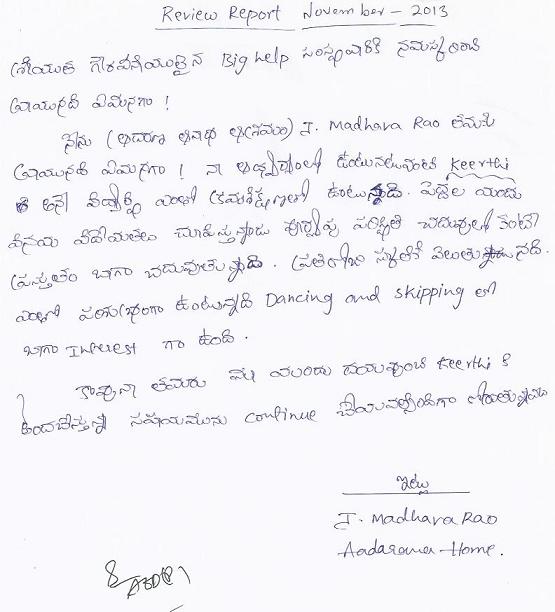 Review Report November - 2013
శ్రీయుత గౌరవనీయులైన Big help సంస్థవారికి నమస్కరించి
వ్రాయునది ఏమనగా !
నేను (ఆదరణ అనాథ ఆశ్రమం) J. Madhava Rao తమకు
వ్రాయునది ఏమనగా ! నా ఆధ్వర్యంలో ఉంటునటువంటి Keerthi
అనే విద్యార్థి ఎంతో క్రమశిక్షణతో ఉంటున్నది. పెద్దల యందు
వినయ విధేయతలు చూపిస్తున్నాడు పూర్వపు పరిస్థితి చదువులో కంటే
ప్రస్తుతం బాగా చదువుతున్నది. ప్రతిరోజు స్కూల్‌కి వెలుతున్నది.
ఎంతో పరిశుభ్రంగా ఉంటున్నది Dancing and skipping లో
బాగా Interest గా ఉంది.
కావున తమరు మా యందు దయవుంచి Keerthi కి
అందచేస్తున్న సహాయమును continue చేయవలసిందిగా కోరుతున్నాము
ఇట్లు
J. Madhava Rao
Aadarana Home.